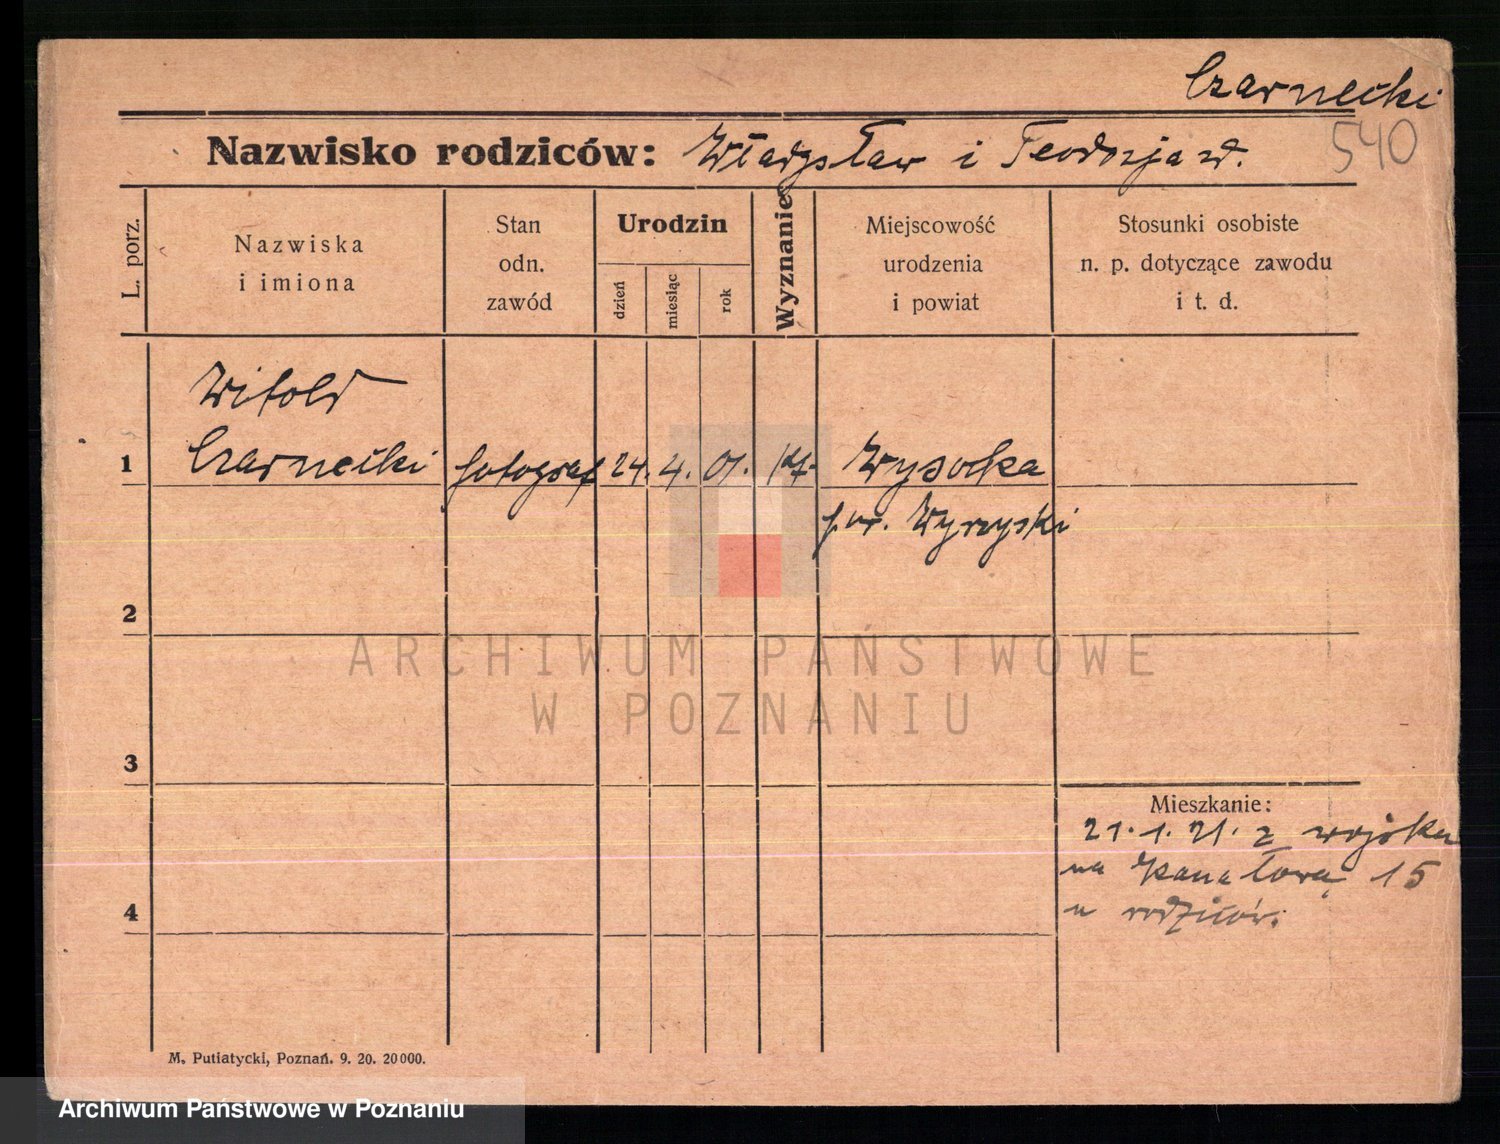 Czarnecki
540
Nazwisko rodziców: Władysław i Teodozja zd.
L. porz.
Nazwiska
i imiona
Stan
odn.
zawód
Urodzin
dzień
miesiąc
rok
Wyznanie
Miejscowość
urodzenia
i powiat
Stosunki osobiste
n. p. dotyczące zawodu
i t. d.
Witold
1 Czarnecki fotograf 24. 4. 01. kat. Wysocka
pow. Wyrzyski
2
ARCHIWUM PAŃSTWOWE
W POZNANIU
3
Mieszkanie:
21.1.21. z wojska
na Kanałową 15
4
u rodziców.
M. Putiatycki, Poznań. 9. 20. 20000.
Archiwum Państwowe w Poznaniu